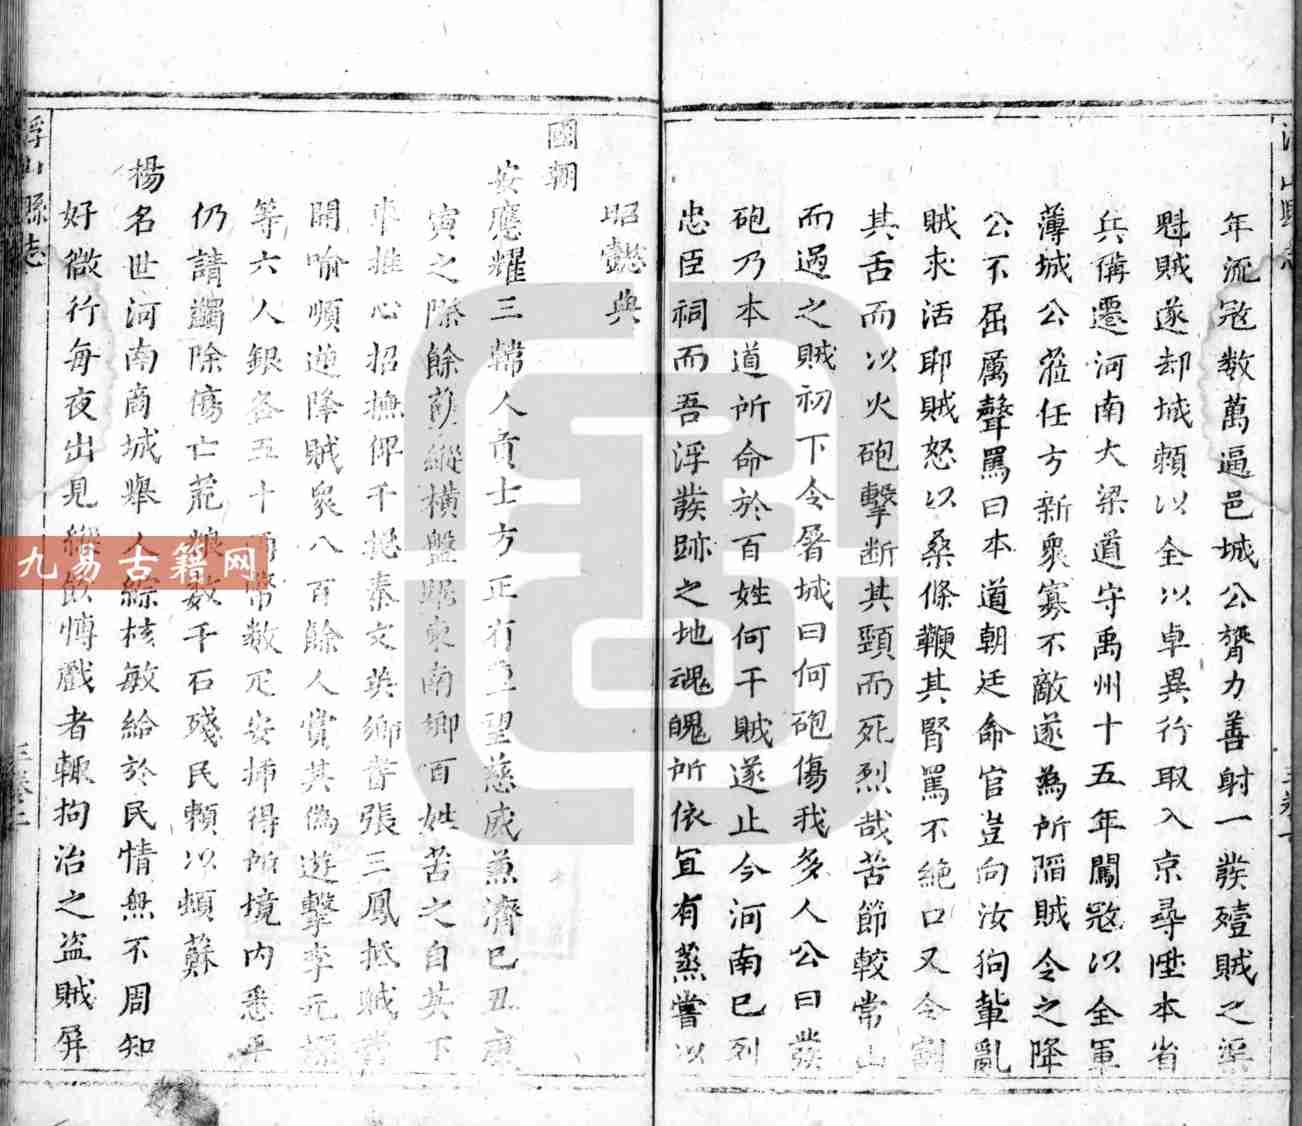 年流冦数萬逼邑城公膂力善射一發殪賊之渠
魁賊遂却城頼以全以卓異行取入京尋陞本省
兵備遷河南大梁道守禹州十五年闖冦以全軍
薄城公蒞任方新衆寡不敵遂為所陷賊令之降
公不屈厲聲罵曰本道朝廷命官豈向汝狥軰亂
賊求活耶賊怒以桑條鞭其腎罵不絶口又令割
其舌而以火砲擊断其頸而死烈哉苦節較常山
而過之賊初下令屠城曰何砲傷我多人公曰發
砲乃本道所命於百姓何干賊遂止今河南已列
忠臣祠而吾浮發跡之地魂魄所依宜有蒸嘗以
昭懿典
國朝
安應耀三韓人貢士方正有望慈威兼濟已丑庚
寅之際餘縱横盤東南鄉百姓苦之自英下
車推心招撫仰千把秦文英鄉耆張三鳳抵賊營
開喻順逆降賊衆八百餘人賞其偽遊擊李元
等六人銀各五十兩幣数疋安插得所境内悉平
仍請蠲除傷亡荒粮数千石殘民頼以頓蘇
楊名世河南商城舉人綜核敏給於民情無不周知
好微行每夜出見縱飲慱戲者輙拘治之盗賊屏
浮山縣志
九易古籍网